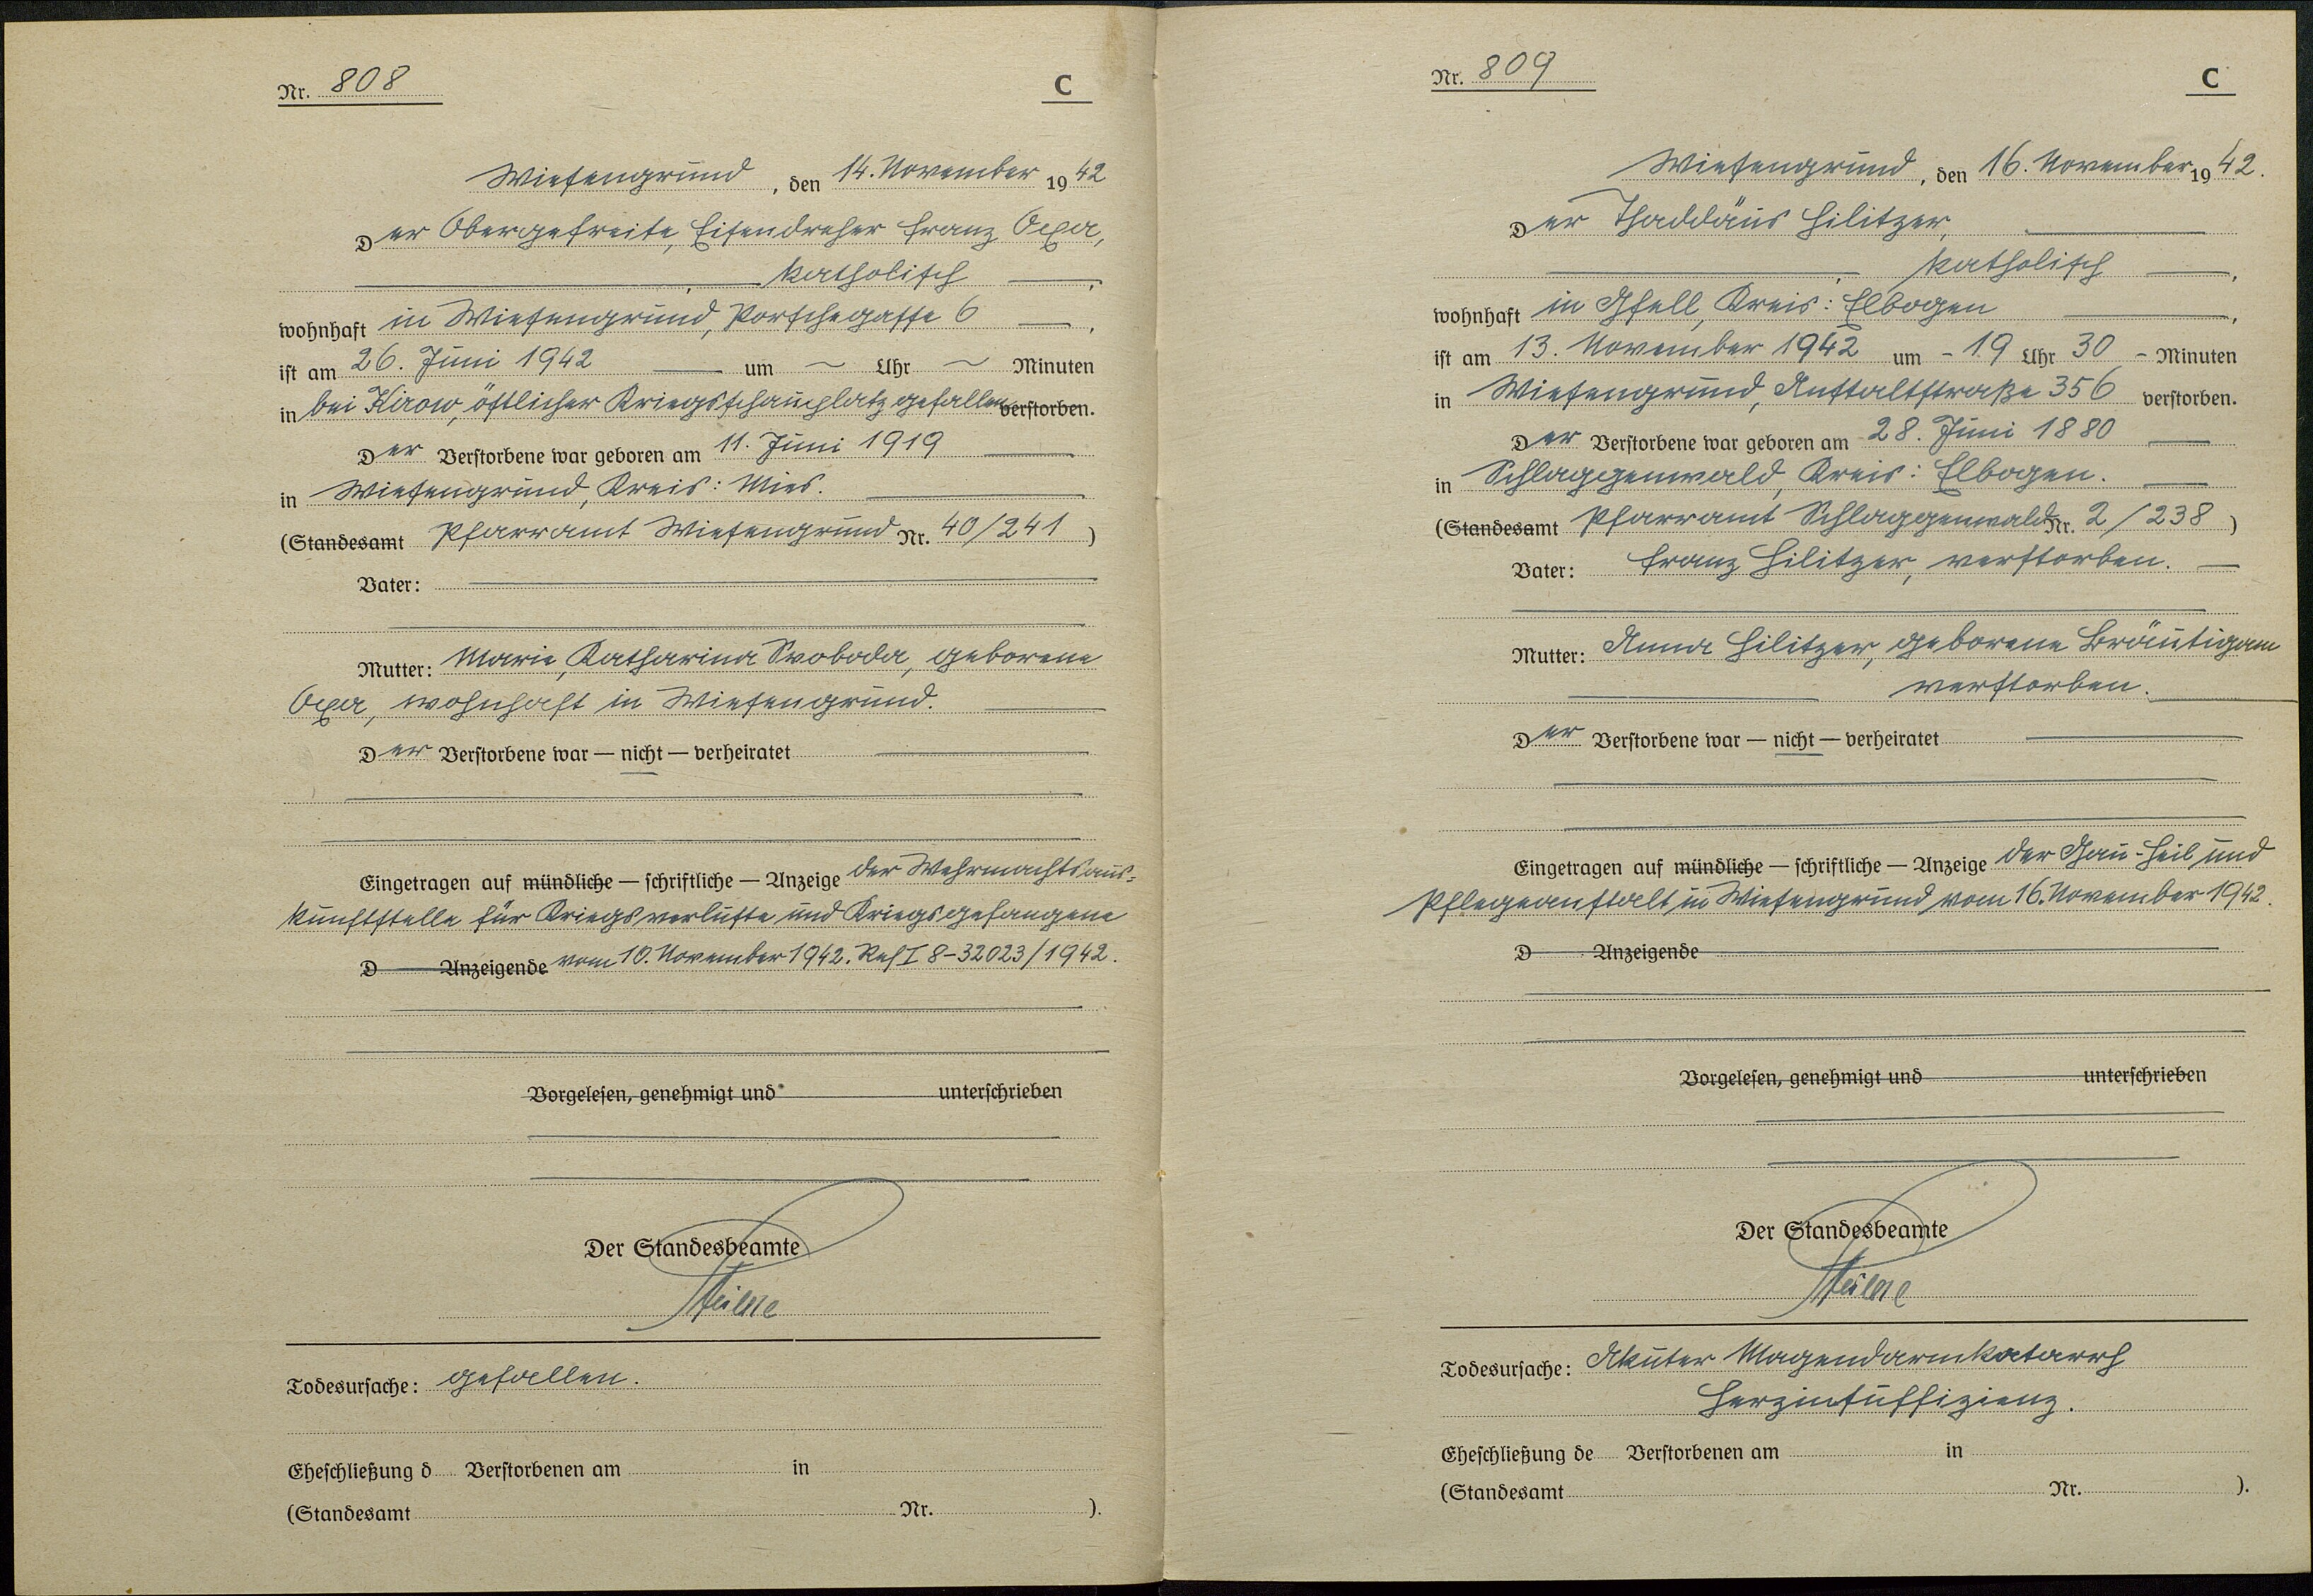 Nr. 808
C
Wiesengrund, den 14. November 1942
Der Obergefreite, Eisendreher Franz Oexa,
katholisch,
wohnhaft in Wiesengrund, Porschegasse 6,
ist am 26. Juni 1942 um ~ Uhr ~ Minuten
in bei Kirow, östlicher Kriegsschauplatz gefallen verstorben.
Der Verstorbene war geboren am 11. Juni 1919
in Wiesengrund, Kreis: Mies.
(Standesamt Pfarramt Wiesengrund Nr. 40/241)
Vater:
Mutter: Marie, Katharina Svoboda, geborene
Oexa, wohnhaft in Wiesengrund.
Der Verstorbene war — nicht — verheiratet
Eingetragen auf mündliche — schriftliche — Anzeige der Wehrmachtsaus-
kunftstelle für Kriegsverluste und Kriegsgefangene
D Anzeigende vom 10. November 1942. Ref I 8-32023/1942.
Vorgelesen, genehmigt und unterschrieben
Der Standesbeamte
Todesursache: gefallen.
Eheschließung d Verstorbenen am in
(Standesamt Nr. ).
Nr. 809
C
Wiesengrund, den 16. November 1942.
Der Thaddäus Hilitzer,
katholisch,
wohnhaft in Gfell, Kreis: Elbogen,
ist am 13. November 1942 um - 19 Uhr 30 - Minuten
in Wiesengrund, Anstaltstraße 356 verstorben.
Der Verstorbene war geboren am 28. Juni 1880
in Schlaggenwald, Kreis: Elbogen.
(Standesamt Pfarramt Schlaggenwald Nr. 2/238)
Vater: Franz Hilitzer, verstorben.
Mutter: Anna Hilitzer, geborene Bräutigam
verstorben.
Der Verstorbene war — nicht — verheiratet
Eingetragen auf mündliche — schriftliche — Anzeige der Gau-Heil und
Pflegeanstalt in Wiesengrund vom 16. November 1942.
D Anzeigende
Vorgelesen, genehmigt und unterschrieben
Der Standesbeamte
Todesursache: Akuter Magendarmkatarrh
Herzinsuffizienz.
Eheschließung de Verstorbenen am in
(Standesamt Nr. ).